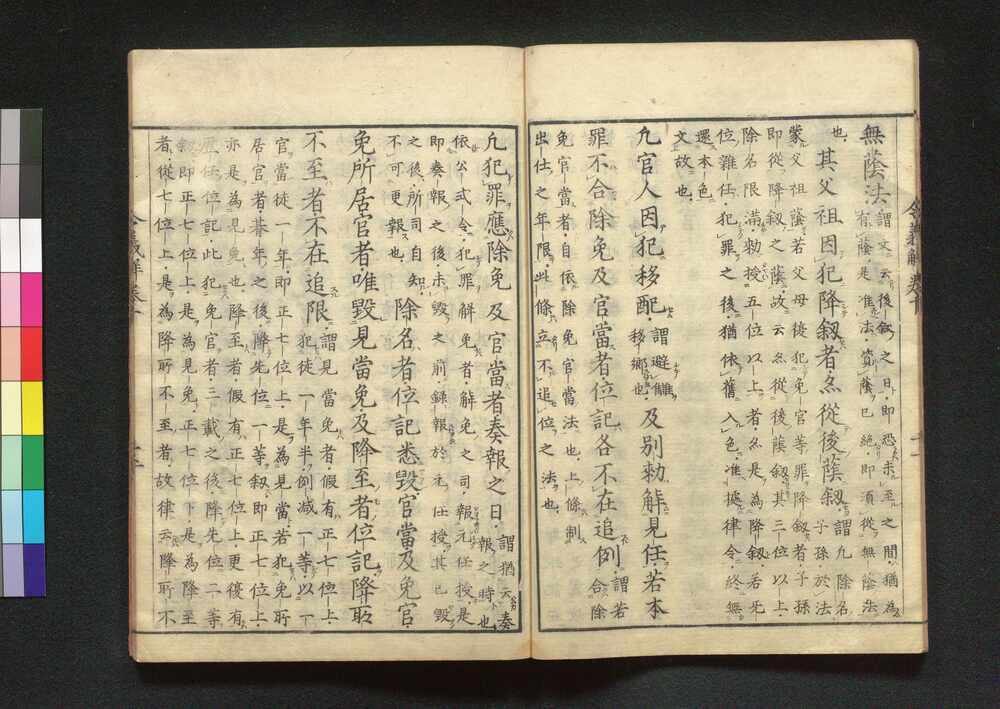 無蔭法謂文云後叙之日即恐未至之間猶為
有蔭是准法資蔭已絶即須從無蔭法
也
其父祖因犯降叙者亦從後蔭叙謂凢除名
子孫於法
蒙父祖蔭若父母徒犯免官等罪降叙者子孫
即從降叙之蔭故云亦從後蔭叙其三位以上
除名限滿勅授五位以上者亦是為降叙若无
位雜任犯罪之後猶依舊入色准據律令終無
還本色
文故也
凢官人因犯移配謂避讎
移郷也及別勅解見任若本
罪不合除免及官當者位記各不在追例謂若
合除
免官當者自依除免官當法也上條制
出仕之年限此條立不追位之法也
凢犯罪應除免及官當者奏報之日謂猶云奏
報之時也
依公式令犯罪解免者解免之司報元任授是
即奏報之後未毀之前錄報於元任授其已毀
之後所司自知
不可更報也除名者位記悉毀官當及免官
免所居官者唯毀見當免及降至者位記降所
不至者不在追限謂見當免者假有正七位上
犯徒一年半例减一等以一
官當徒一年即正七位上是為見當若犯免所
居官者朞年之後降先位一等叙即正七位上
亦是為見免也降至者假有正七位上更復有
歷任位記此犯免官者三載之後降先位二等
叙即正七位上是為見免正七位下是為降至
者從七位上是為降所不至者故律云降所不
令義解卷十